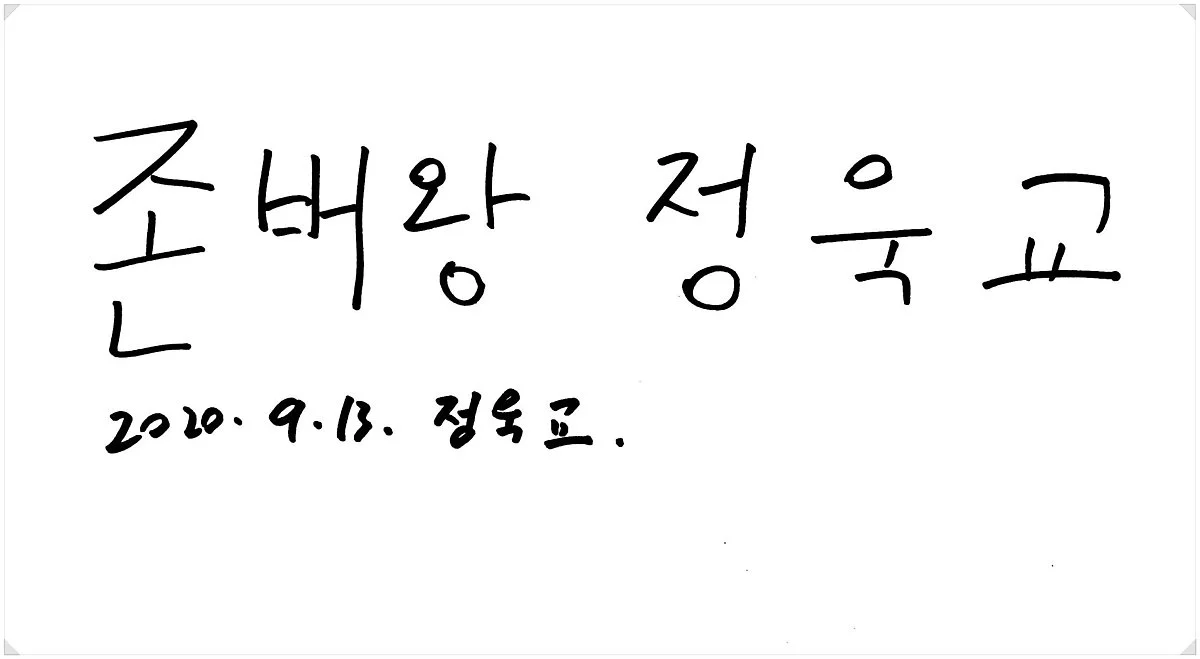 존버왕 정욱교
2020. 9. 13. 정욱교.